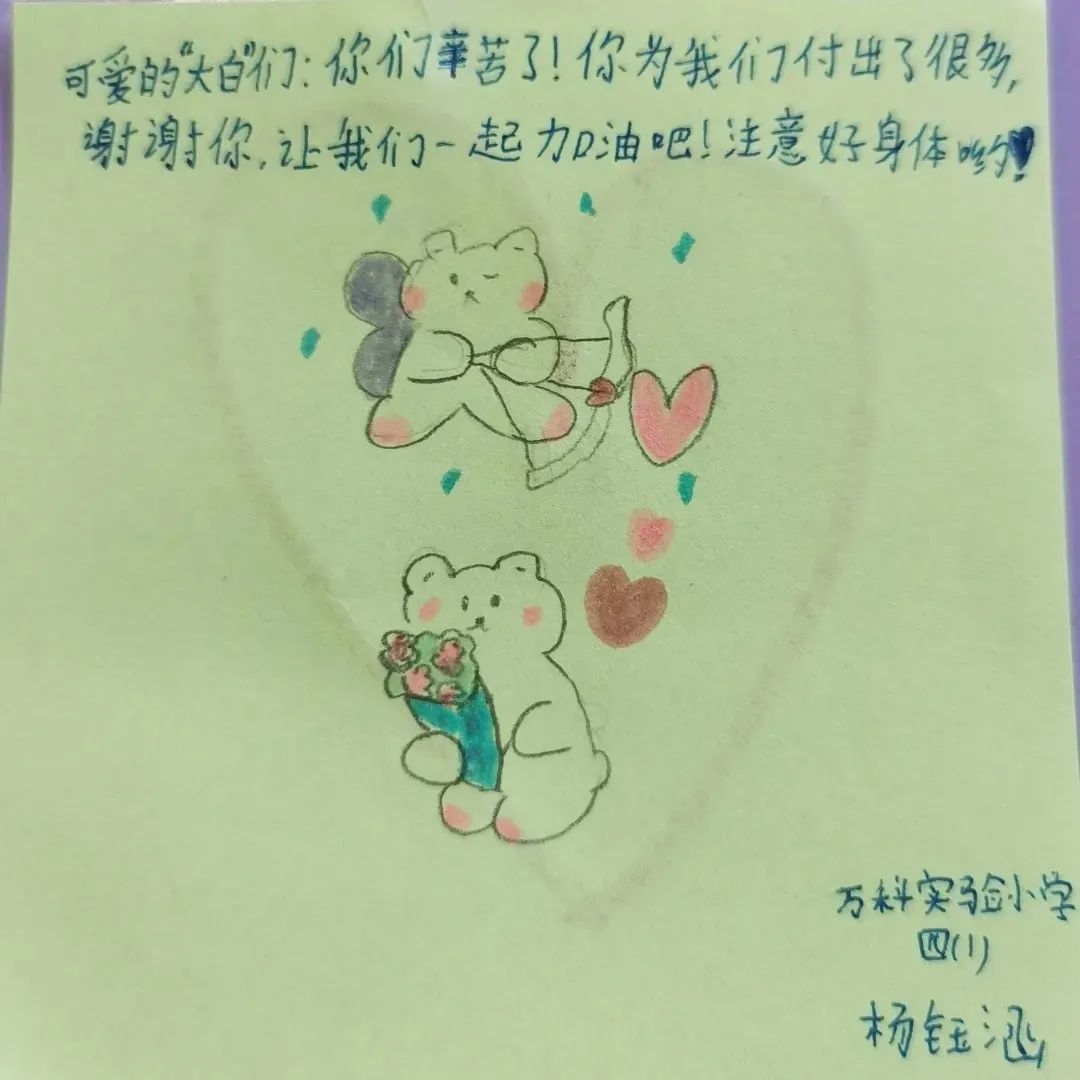 可爱的“大白”们：你们辛苦了！你为我们付出了很多，
谢谢你，让我们一起加油吧！注意好身体哟！
万科实验小学
四(1)
杨钰涵